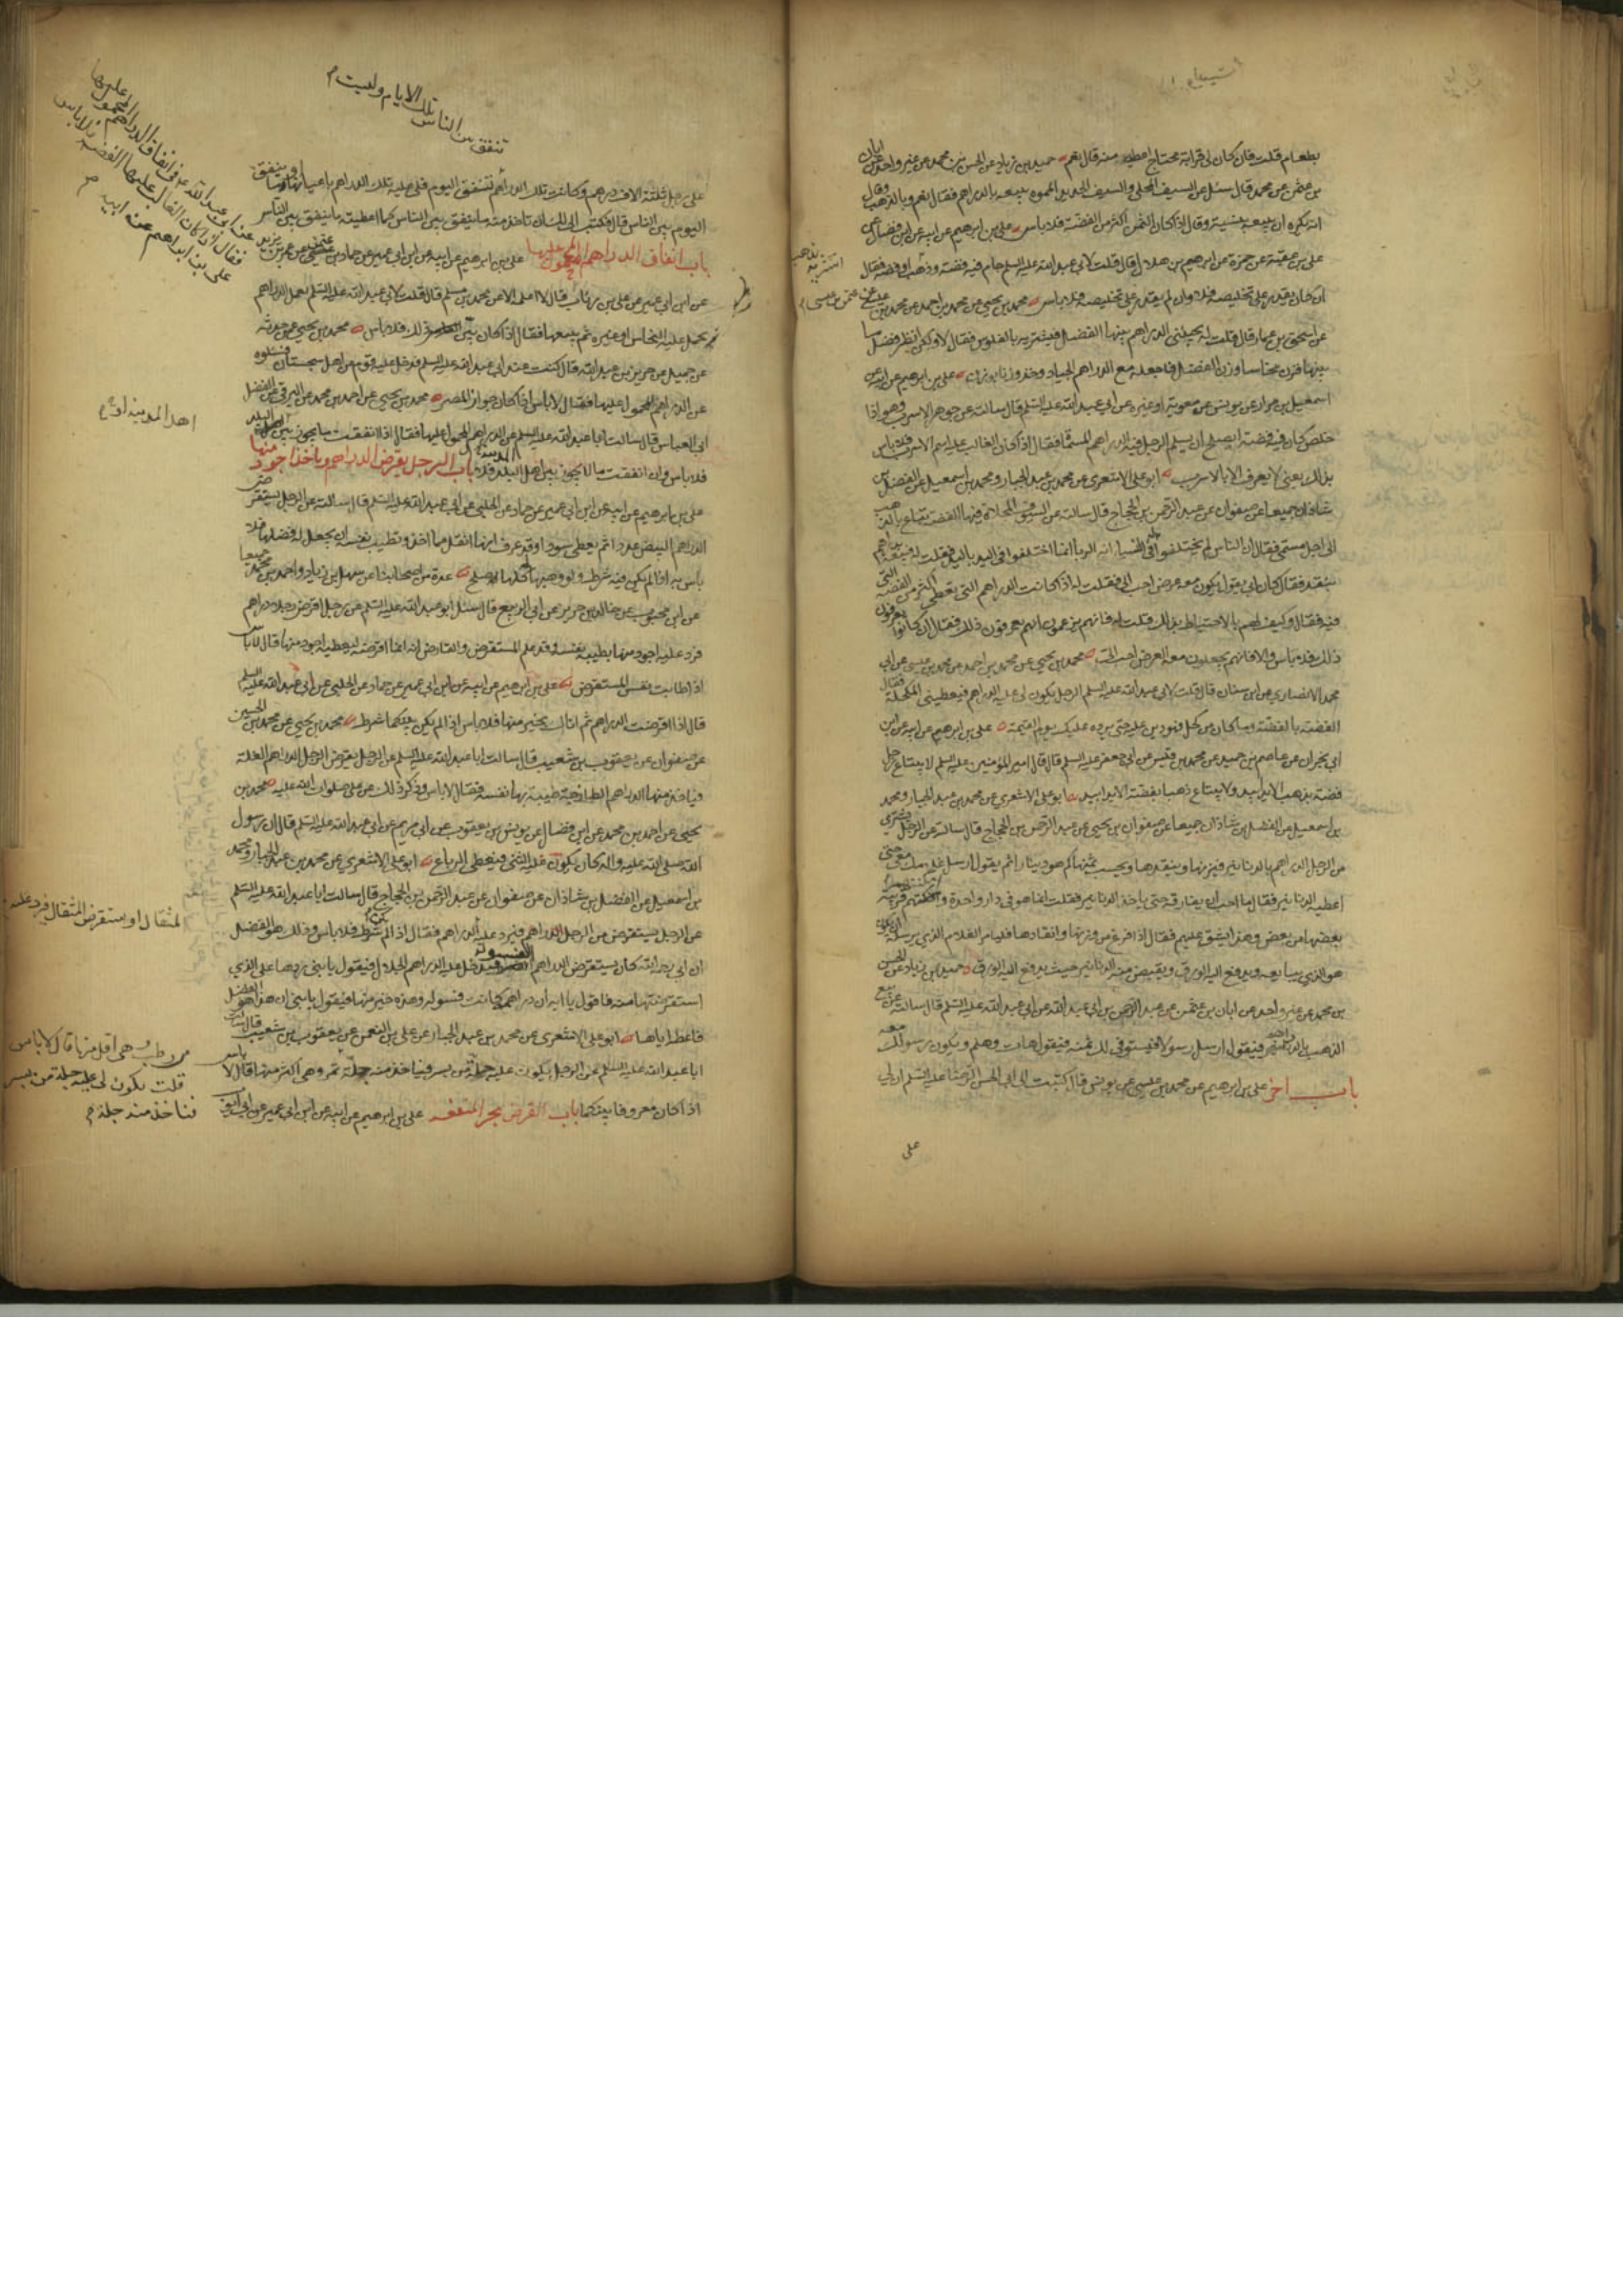 بطعام قلت فان كان لى قرابة محتاج اعطيه منه قال نعم حميد بن زياد عن الحسن بن محمد عن غير واحد عن ابان
بن عثمن عن محمد قال سئل عن السيف المحلى والسيف الحديد المموه يبيعه بالدراهم فقال نعم وبالذهب وقال
انه يكره ان يبيعه بنسية وقال اذا كان الثمن اكثر من الفضة فلا باس على بن ابرهيم عن ابيه عن ابن فضال عن
على بن عقبة عن حمزة عن ابرهيم بن هلال قال قلت لابى عبد الله عليه السلم جام فيه فضة وذهب
اشتريه بذهب او فضة فقال
ان كان يقدر على تخليصه فلا وان لم يقدر على تخليصه فلا باس محمد بن يحيى عن محمد بن احمد عن محمد بن عيسى عن
عثمن بن عيسى
عن اسحق بن عمار قال قلت له يجيئنى الدراهم بينها الفضل فنشتريه بالفلوس فقال لا ولكن انظر فضل ما
بينهما فزن نحاسا وزن الفضل فاجعله مع الدراهم الجياد وخذ وزنا بوزن على بن ابرهيم عن ابيه عن
اسمعيل بن مرار عن يونس عن معوية او غيره عن ابى عبد الله عليه السلم قال سالته عن جوهر الاسرب وهو اذا
خلص كان فيه فضة ايصلح ان يسلم الرجل فيه الدراهم المسماة فقال اذا كان الغالب عليه اسم الاسرب فلا باس
بذلك يعنى لا يعرف الا بالاسرب ابو على الاشعرى عن محمد بن عبد الجبار ومحمد بن اسمعيل عن الفضل بن
شاذان جميعا عن صفوان عن عبد الرحمن بن الحجاج قال سالته عن السيوف المحلاة فيها الفضة تباع بالذهب
الى اجل مسمى فقال ان الناس لم يختلفوا فى النسا انه الربا انما اختلفوا فى اليد باليد فقلت له فيبيعه بدراهم
بنقد فقال كان ابى يقول يكون معه عرض احب الى فقلت له اذا كانت الدراهم التى تعطى اكثر من الفضة التى
فيه فقال وكيف لهم بالاحتياط بذلك قلت له فانهم يزعمون انهم يعرفون ذلك فقال ان كانوا يعرفون
ذلك فلا باس والا فانهم يجعلون معه العرض احب الى محمد بن يحيى عن محمد بن احمد عن محمد بن عيسى عن ابى
محمد الانصارى عن ابن سنان قال قلت لابى عبد الله عليه السلم الرجل يكون لى عليه الدراهم فيعطينى المكحلة فقال
الفضة بالفضة وما كان من كحل فهو دين عليه حتى يرده عليك يوم القيمة على بن ابرهيم عن ابيه عن ابن
ابى نجران عن عاصم بن حميد عن محمد بن قيس عن ابى جعفر عليه السلم قال قال امير المؤمنين عليه السلم لا يبتاع رجل
فضة بذهب الا يدا بيد ولا يبتاع ذهبا بفضة الا يدا بيد ابو على الاشعرى عن محمد بن عبد الجبار ومحمد
بن اسمعيل عن الفضل بن شاذان جميعا عن صفوان بن يحيى عن عبد الرحمن بن الحجاج قال سالته عن الرجل يشترى
من الرجل الدراهم بالدنانير فيزنها وينقدها ويحسب ثمنها كم هو دينارا ثم يقول ارسل غلامك معى حتى
اعطيه الدنانير فقال ما احب ان يفارقه حتى ياخذ الدنانير فقلت انما هو فى دار واحدة وامكنتهم قريبة
بعضها من بعض وهذا يشق عليهم فقال اذا فرغ من وزنها وانقادها فليامر الغلام الذى يرسله ان يكون
هو الذى يبايعه ويدفع اليه الورق ويقبض منه الدنانير حيث يدفع اليه الورق حميد بن زياد عن الحسن
بن محمد عن غير واحد عن ابان بن عثمن عن عبد الرحمن بن ابى عبد الله عن ابى عبد الله عليه السلم قال سالته عن بيع
الذهب بالدراهم فيقول ارسل رسولا فيستوفى لك ثمنه فيقول هات وهلم ويكون رسولك معه
باب اخر على بن ابرهيم عن محمد بن عيسى عن يونس قال كتبت الى ابى الحسن الرضا عليه السلم ان لى
على
على رجل ثلثة الاف درهم وكانت تلك الدراهم تنفق
تنفق بين الناس تلك الايام وليست
اليوم فلى عليه تلك الدراهم باعيانها او ما ينفق
اليوم بين الناس قال فكتب الى لك ان تاخذ منه ما ينفق بين الناس كما اعطيته ما ينفق بين الناس
باب انفاق الدراهم المحمول عليها على بن ابرهيم عن ابيه عن ابن ابى عمير عن حماد بن عثمن عن عمر بن يزيد
عن ابى عبد الله ع فى انفاق الدراهم المحمول عليها
فقال اذا كان الغالب عليها الفضة فلا باس
على بن ابراهيم عن ابيه
عن ابن ابى عمير عن على بن رئاب قال لا اعلمه الا عن محمد بن مسلم قال قلت لابى عبد الله عليه السلم يعمل الدراهم
يحمل عليه النحاس او غيره ثم يبيعها فقال اذا كان بين ذلك فلا باس محمد بن يحيى عمن حدثه
عن جميل عن حريز بن عبد الله قال كنت عند ابى عبد الله عليه السلم فدخل عليه قوم من اهل سجستان فسئلوه
عن الدراهم المحمول عليها فقال لا باس اذا كان جواز المصر محمد بن يحيى عن احمد بن محمد عن البرقى عن الفضل
ابى العباس قال سالت ابا عبد الله عليه السلم عن الدراهم المحمول عليها فقال اذا انفقت ما يجوز بين اهل البلد
اهل المدينة
فلا باس وان انفقت ما لا يجوز بين اهل البلد فلا باب الرجل يقرض الدراهم وياخذ اجود منها
على بن ابرهيم عن ابيه عن ابن ابى عمير عن حماد عن الحلبى عن ابى عبد الله عليه السلم قال سالته عن الرجل يستقرض
الدراهم البيض عددا ثم يعطى سودا وقد عرف انها اثقل مما اخذ وتطيب نفسه ان يجعل له فضلها فقال لا
باس به اذا لم يكن فيه شرط ولو وهبها كلها له صلح عدة من اصحابنا عن سهل بن زياد واحمد بن محمد جميعا
عن ابن محبوب عن خالد بن جرير عن ابى الربيع قال سئل ابو عبد الله عليه السلم عن رجل اقرض رجلا دراهم
فرد عليه اجود منها بطيبة نفسه وقد علم المستقرض والقارض انه انما اقرضه ليعطيه اجود منها قال لا باس
اذا طابت نفس المستقرض على بن ابرهيم عن ابيه عن ابن ابى عمير عن حماد عن الحلبى عن ابى عبد الله عليه السلم
قال اذا اقرضت الدراهم ثم اتاك بخير منها فلا باس اذا لم يكن بينكما شرط محمد بن يحيى عن محمد بن الحسين
عن صفوان عن يعقوب بن شعيب قال سالت ابا عبد الله عليه السلم عن الرجل يقرض الرجل الدراهم الغلة
فياخذ منها الدراهم الطازجية طيبة بها نفسه فقال لا باس وذكر ذلك عن على صلوات الله عليه محمد بن
يحيى عن احمد بن محمد عن ابن فضال عن يونس بن يعقوب عن ابى مريم عن ابى عبد الله عليه السلم قال ان رسول
الله صلى الله عليه واله كان يكون عليه الثنى فيعطى الرباع ابو على الاشعرى عن محمد بن عبد الجبار ومحمد
بن اسمعيل عن الفضل بن شاذان عن صفوان عن عبد الرحمن بن الحجاج قال سالت ابا عبد الله عليه السلم
عن الرجل يستقرض من الرجل الدراهم فيرد عليه
المثقال او يستقرض المثقال فيرد عليه
الدراهم فقال اذا لم يشترط فلا باس وذلك هو الفضل
ان ابى رحمه الله كان يستقرض الدراهم الفسولة فيدخل عليه الدراهم الجلال فيقول يا بنى ردها على الذى
استقرضتها منه فاقول يا ابه ان دراهمه كانت فسولة وهذه خير منها فيقول يا بنى ان هذا هو الفضل
فاعطه اياها ابو على الاشعرى عن محمد بن عبد الجبار عن على بن النعمن عن يعقوب بن شعيب قال سالت
ابا عبد الله عليه السلم عن الرجل يكون عليه جلة من بسر فياخذ منه جلة
من رطب وهى اقل منها قال لا باس
قلت يكون لى عليه جلة من بسر
فناخذ منه جلة
تمر وهى اكثر منها قال لا باس
اذا كان معروفا بينكما باب القرض يجر المنفعة على بن ابرهيم عن ابيه عن ابن ابى عمير عن ابى ايوب